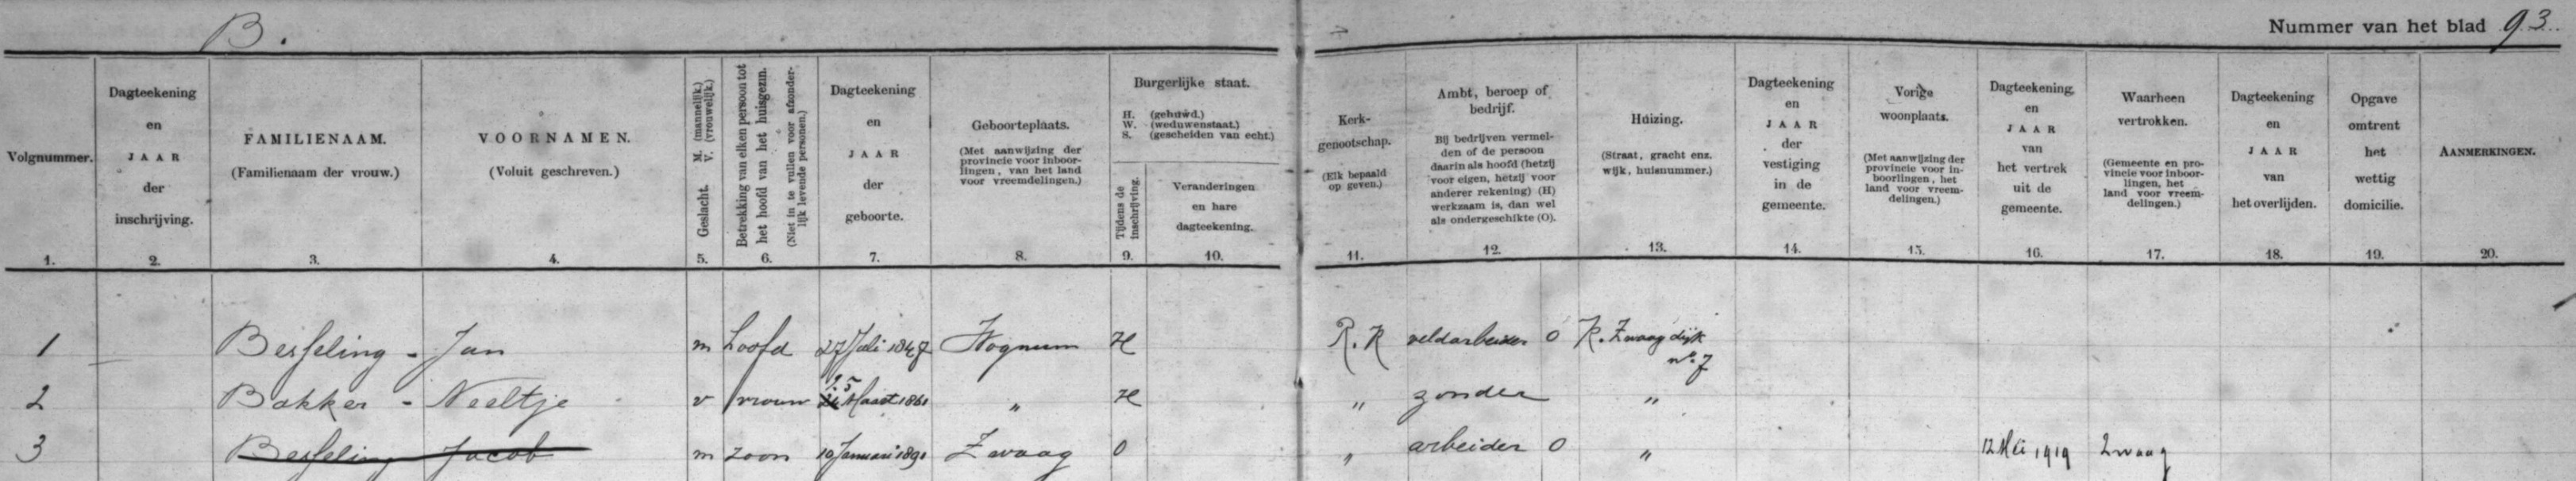 B.
Nummer van het blad 93.
Volgnummer.
1.
Dagteekening
en
JAAR
der
inschrijving.
2.
FAMILIENAAM.
(Familienaam der vrouw.)
3.
VOORNAMEN.
(Voluit geschreven.)
4.
Geslacht. M. (mannelijk.)
V. (vrouwelijk.)
5.
Betrekking van elken persoon tot
het hoofd van het huisgezin.
(Niet in te vullen voor afzonder-
lijk levende personen.)
6.
Dagteekening
en
JAAR
der
geboorte.
7.
Geboorteplaats.
(Met aanwijzing der
provincie voor inboor-
lingen, van het land
voor vreemdelingen.)
8.
Burgerlijke staat.
H. (gehuwd.)
W. (weduwenstaat.)
S. (gescheiden van echt.)
Tijdens de
inschrijving.
9.
Veranderingen
en hare
dagteekening.
10.
Kerk-
genootschap.
(Elk bepaald
op geven.)
11.
Ambt, beroep of
bedrijf.
Bij bedrijven vermel-
den of de persoon
daarin als hoofd (hetzij
voor eigen, hetzij voor
anderer rekening) (H)
werkzaam is, dan wel
als ondergeschikte (O).
12.
Huizing.
(Straat, gracht enz.
wijk, huisnummer.)
13.
Dagteekening
en
JAAR
der
vestiging
in de
gemeente.
14.
Vorige
woonplaats.
(Met aanwijzing der
provincie voor in-
boorlingen, het
land voor vreem-
delingen.)
15.
Dagteekening
en
JAAR
van
het vertrek
uit de
gemeente.
16.
Waarheen
vertrokken.
(Gemeente en pro-
vincie voor inboor-
lingen, het
land voor vreem-
delingen.)
17.
Dagteekening
en
JAAR
van
het overlijden.
18.
Opgave
omtrent
het
wettig
domicilie.
19.
AANMERKINGEN.
20.
1 Besseling - Jan m hoofd 27 Juli 1847 Wognum H R.K veldarbeider O K. Zwaagdijk
no. 7
2 Bakker - Neeltje v vrouw 25 Maart 1861 " H " zonder "
3 Besseling Jacob m zoon 10 Januari 1891 Zwaag O " arbeider O " 12 Mei 1919 Zwaag